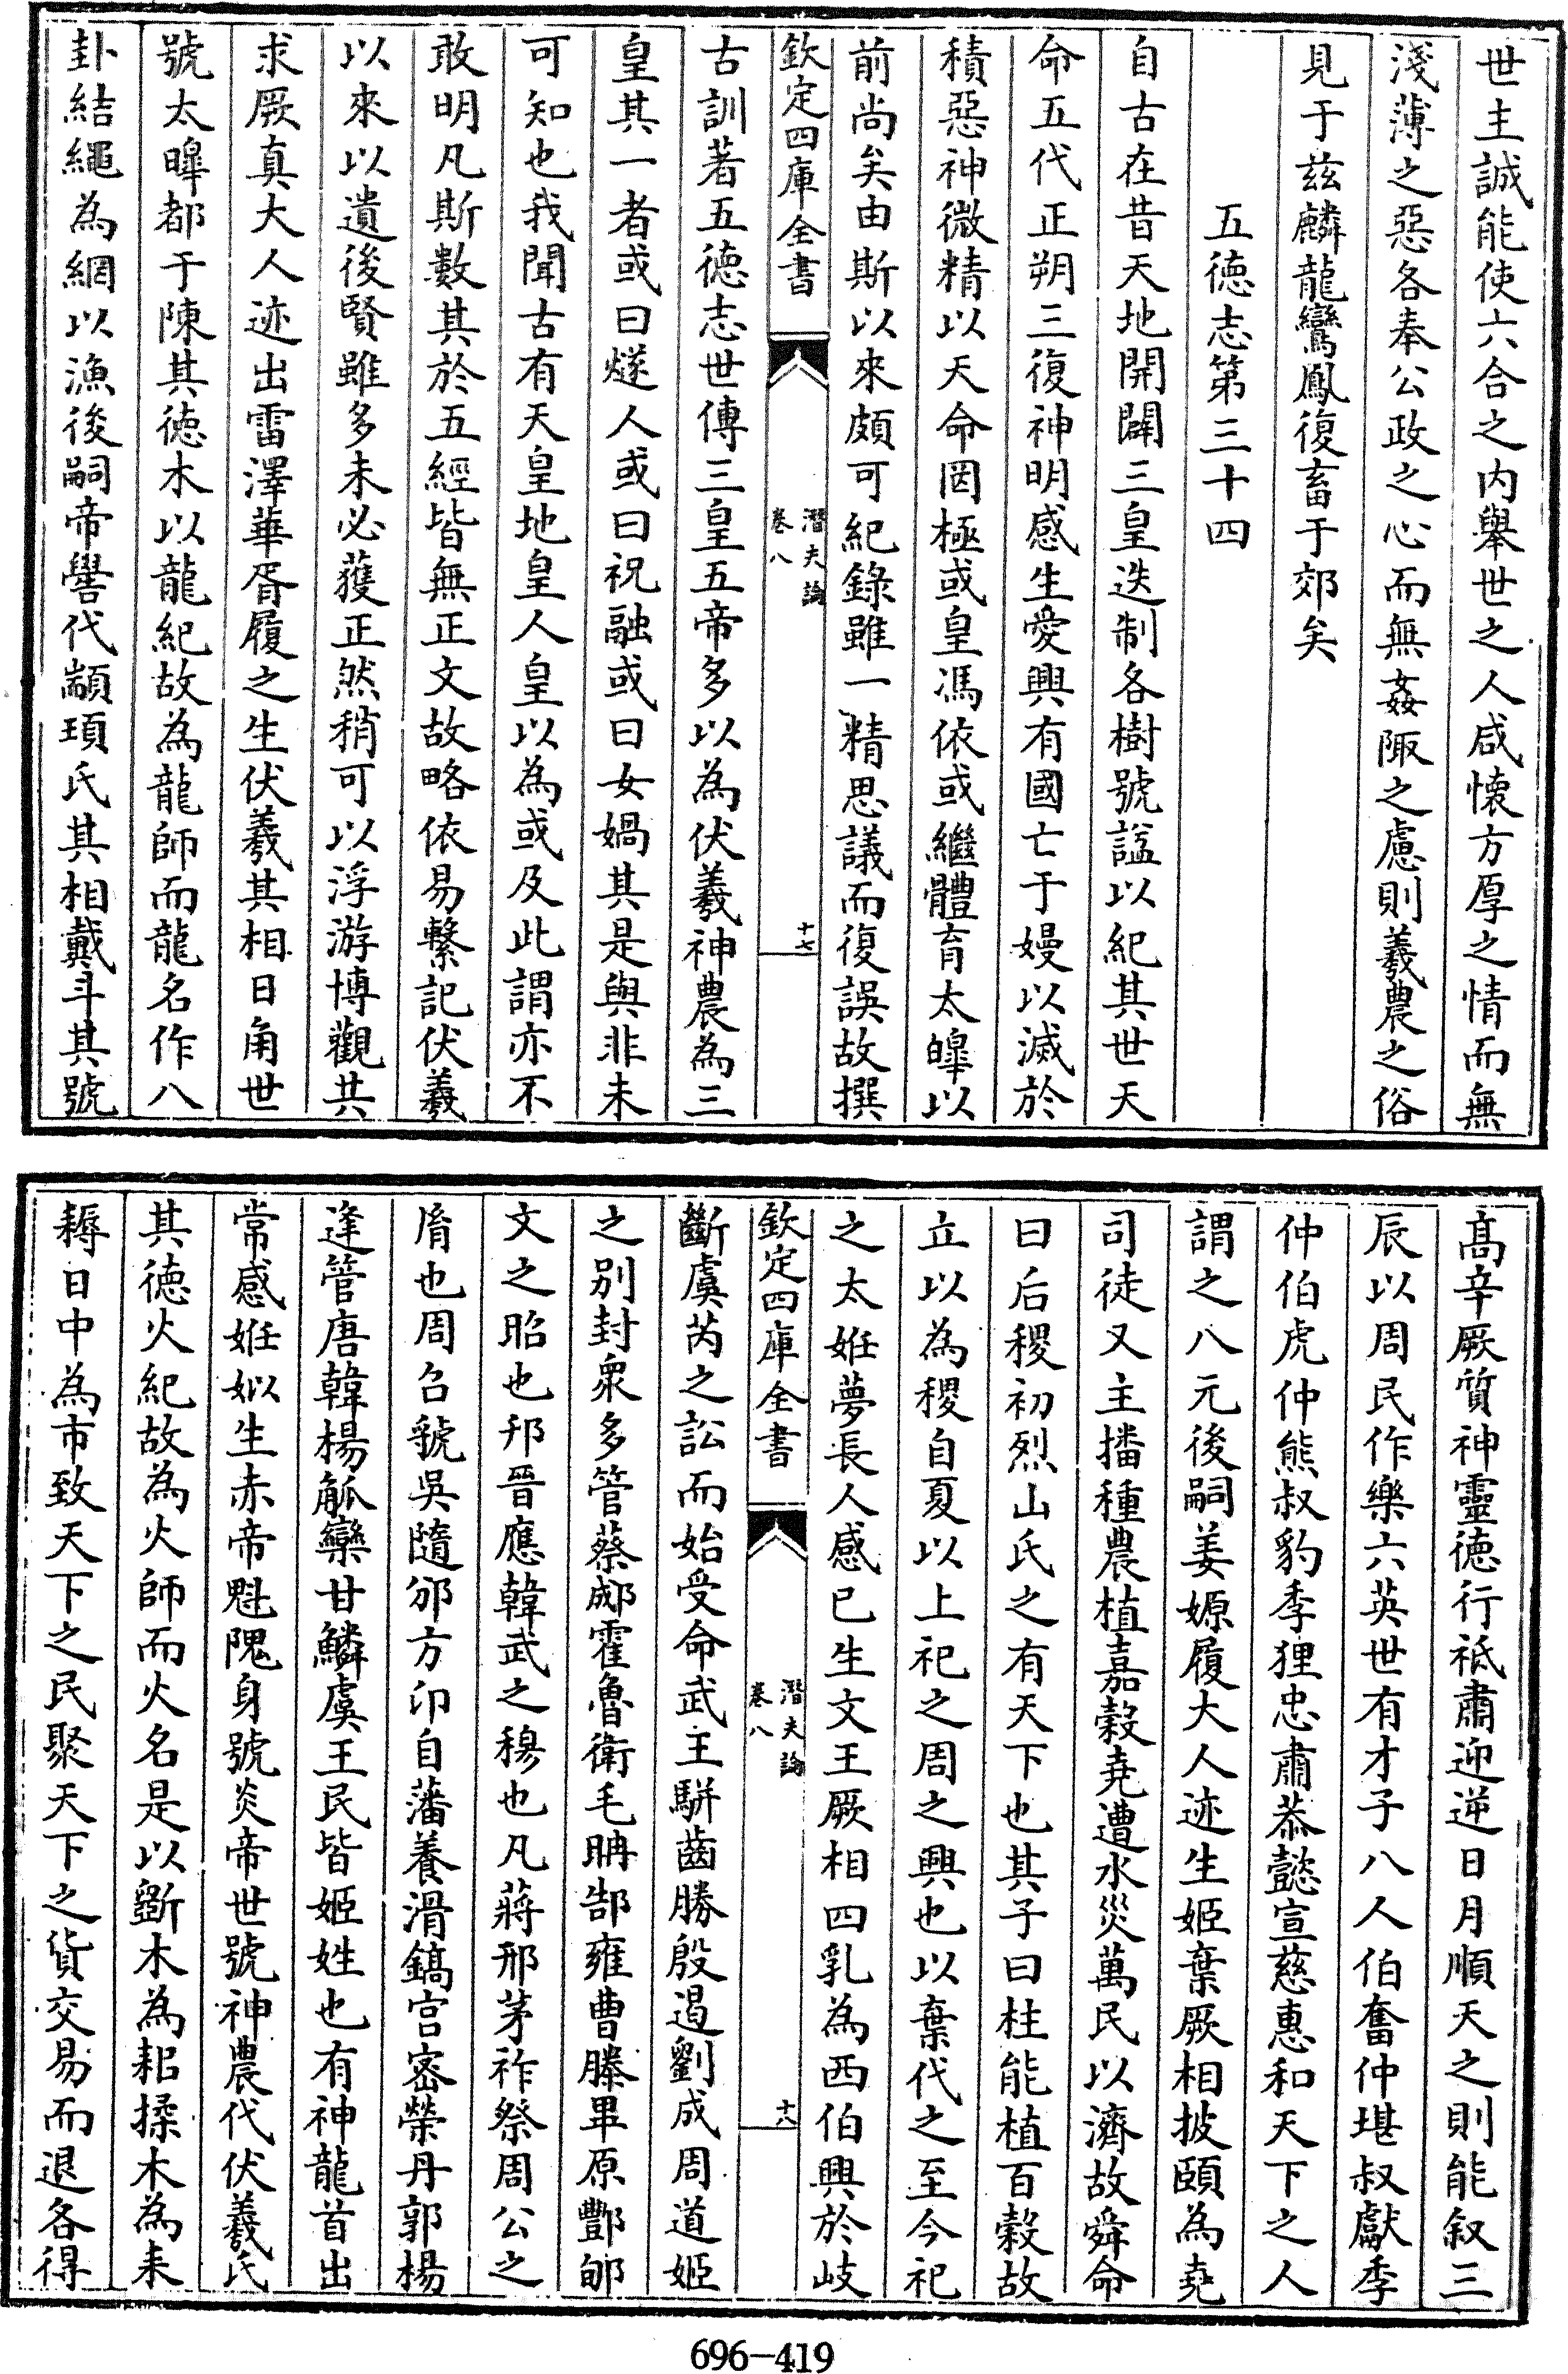 世主誠能使六合之内舉世之人咸懷方厚之情而無
淺薄之惡各奉公政之心而無姦陬之慮則羲農之俗
見于兹麟龍鸞鳳復畜于郊矣
五德志第三十四
自古在昔天地開闢三皇迭制各樹號諡以紀其世天
命五代正朔三復神明感生愛興有國亡于嫚以滅於
積惡神微精以天命罔極或皇馮依或繼體育太皞以
前尚矣由斯以來頗可紀錄雖一精思議而復誤故撰
欽定四庫全書
潛夫論
卷八
十七
古訓著五德志世傳三皇五帝多以為伏羲神農為三
皇其一者或曰燧人或曰祝融或曰女媧其是與非未
可知也我聞古有天皇地皇人皇以為或及此謂亦不
敢明凡斯數其於五經皆無正文故略依易繫記伏羲
以來以遺後賢雖多未必獲正然稍可以浮游博觀共
求厥真大人迹出雷澤華胥履之生伏羲其相日角世
號太皞都于陳其德木以龍紀故為龍師而龍名作八
卦結繩為網以漁後嗣帝嚳代顓頊氏其相戴斗其號
髙辛厥質神靈德行祗肅迎逆日月順天之則能叙三
辰以周民作樂六英世有才子八人伯奮仲堪叔獻季
仲伯虎仲熊叔豹季狸忠肅恭懿宣慈惠和天下之人
謂之八元後嗣姜嫄履大人迹生姬棄厥相披頤為堯
司徒又主播種農植嘉穀堯遭水災萬民以濟故舜命
曰后稷初烈山氏之有天下也其子曰柱能植百穀故
立以為稷自夏以上祀之周之興也以棄代之至今祀
之太姙夢長人感已生文王厥相四乳為西伯興於岐
欽定四庫全書
潛夫論
卷八
十八
斷虞芮之訟而始受命武王駢齒勝殷遏劉成周道姬
之别封衆多管蔡郕霍魯衛毛聃郜雍曹滕畢原酆郇
文之昭也邘晉應韓武之穆也凡蔣邢茅祚祭周公之
胤也周召虢吳隨邠方卬自藩養滑鎬宫密榮丹郭楊
逢管唐韓楊觚欒甘鱗虞王民皆姬姓也有神龍首出
常感姙姒生赤帝魁隗身號炎帝世號神農代伏羲氏
其德火紀故為火師而火名是以斵木為耜揉木為耒
耨日中為市致天下之民聚天下之貨交易而退各得
696-419